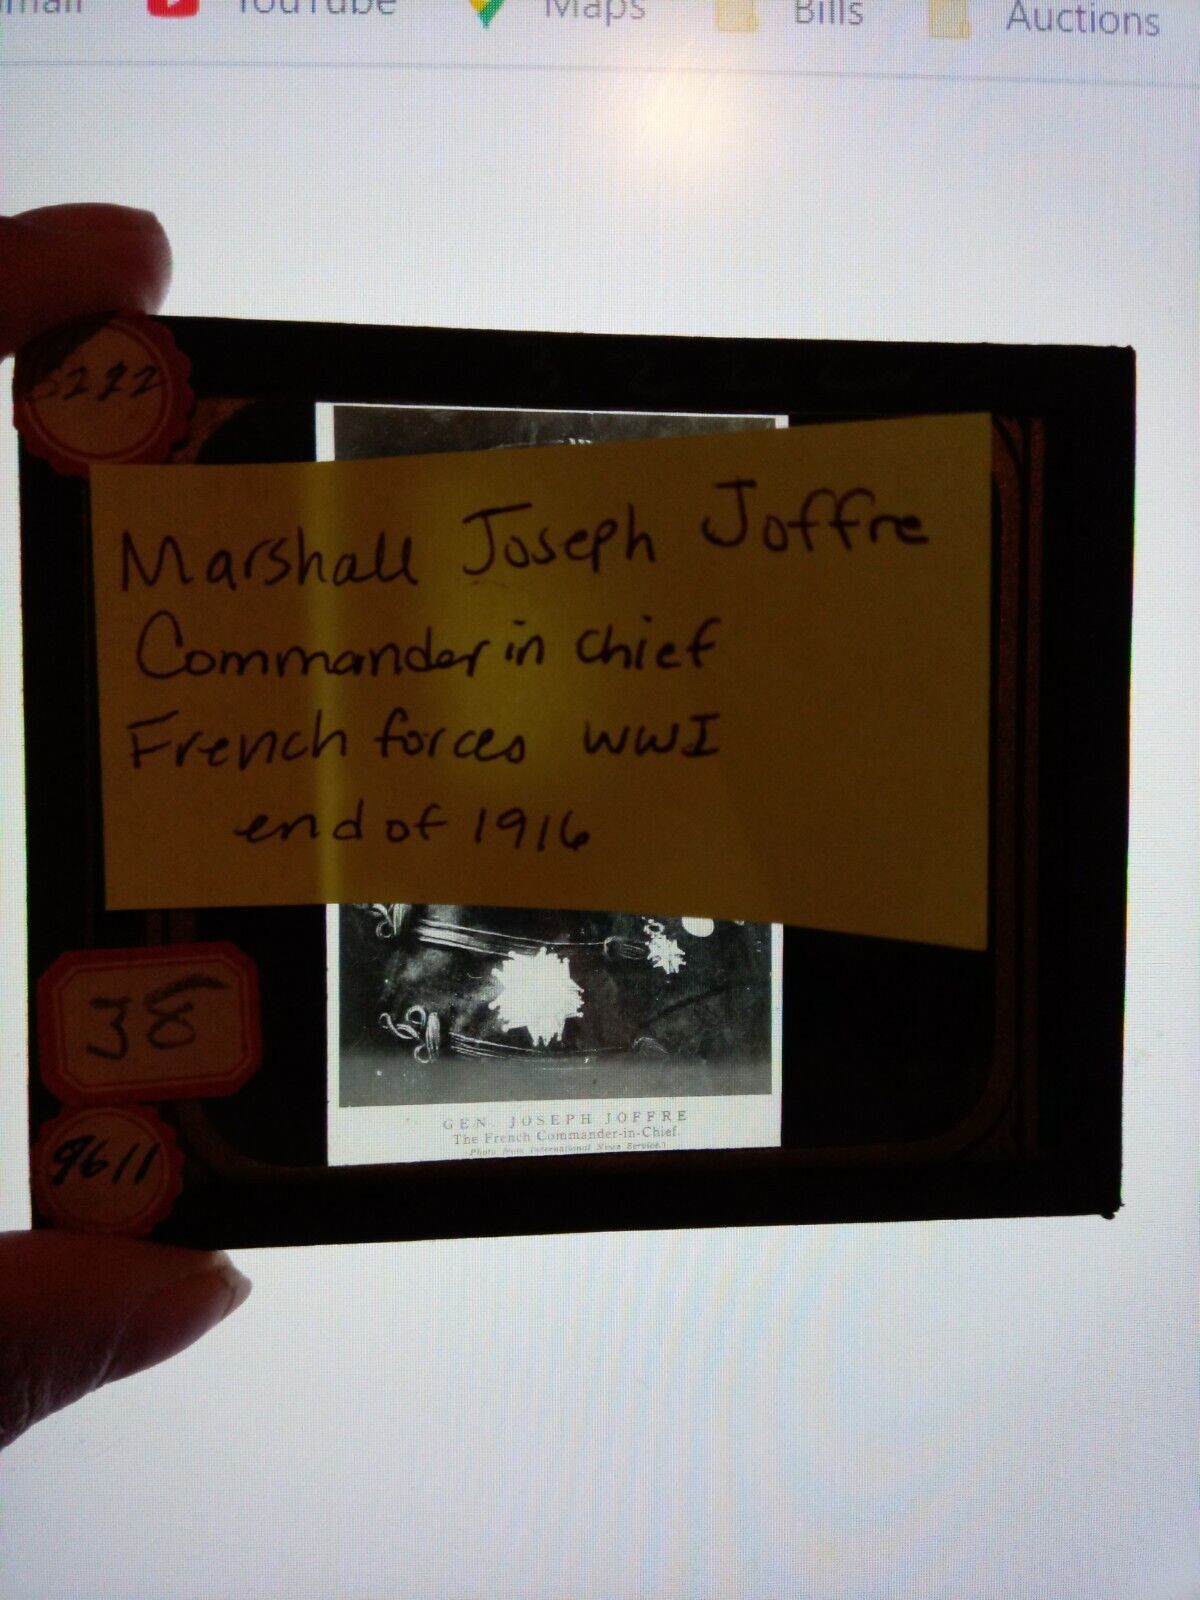 YouTube
Maps
Bills
Auctions
3222
Marshall Joseph Joffre
Commander in Chief
French forces WWI
end of 1916
38
9611
GEN. JOSEPH JOFFRE
The French Commander-in-Chief.
(Photo from International News Service.)